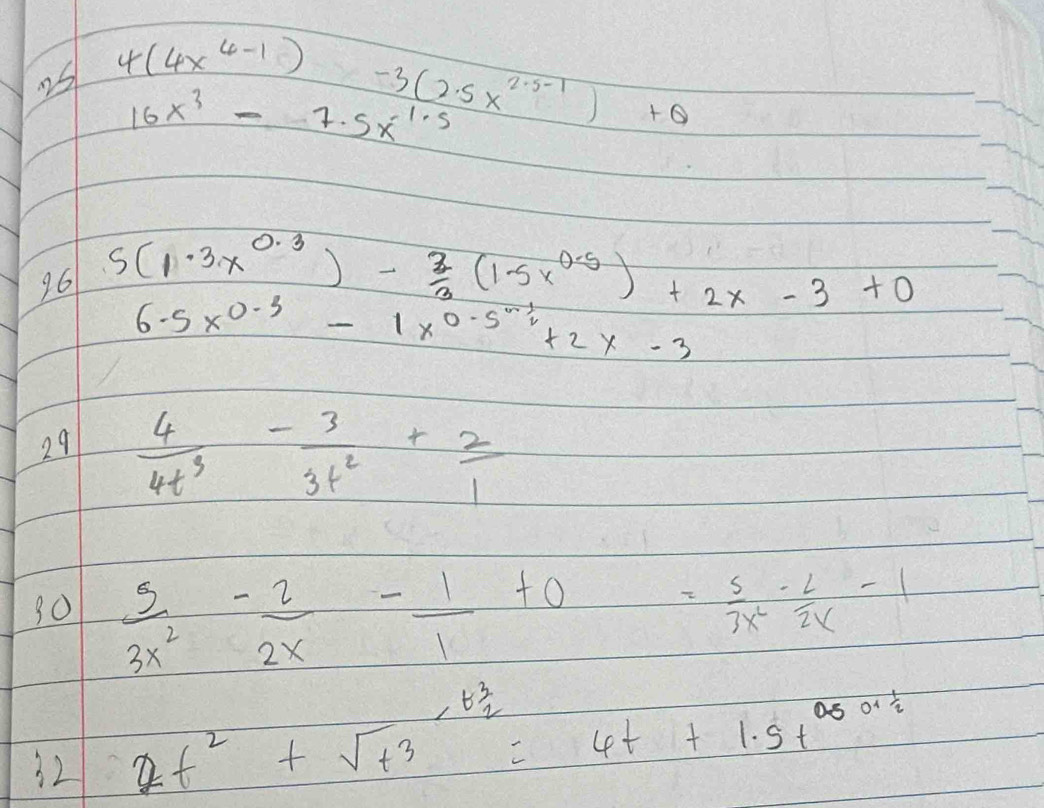 25 4(4x^{4-1}) -3(2.5x^{2.5-1}) +0
16x^3 - 7.5x^{1.5}
26 5(1.3x^{0.3}) - 2/3 (1.5x^{0.5}) + 2x - 3 + 0
6.5x^{0.3} - 1x^{0.5 or 1/2} + 2x - 3
29 4/4t^3 - 3/3t^2 + 2/1
30 5/3x^2 - 2/2x - 1/1 + 0 = 5/3x^2 - 2/2x - 1
t^{3/2}
32 2t^2 + √t^3 = 4t + 1.5t^{0.5 or 1/2}